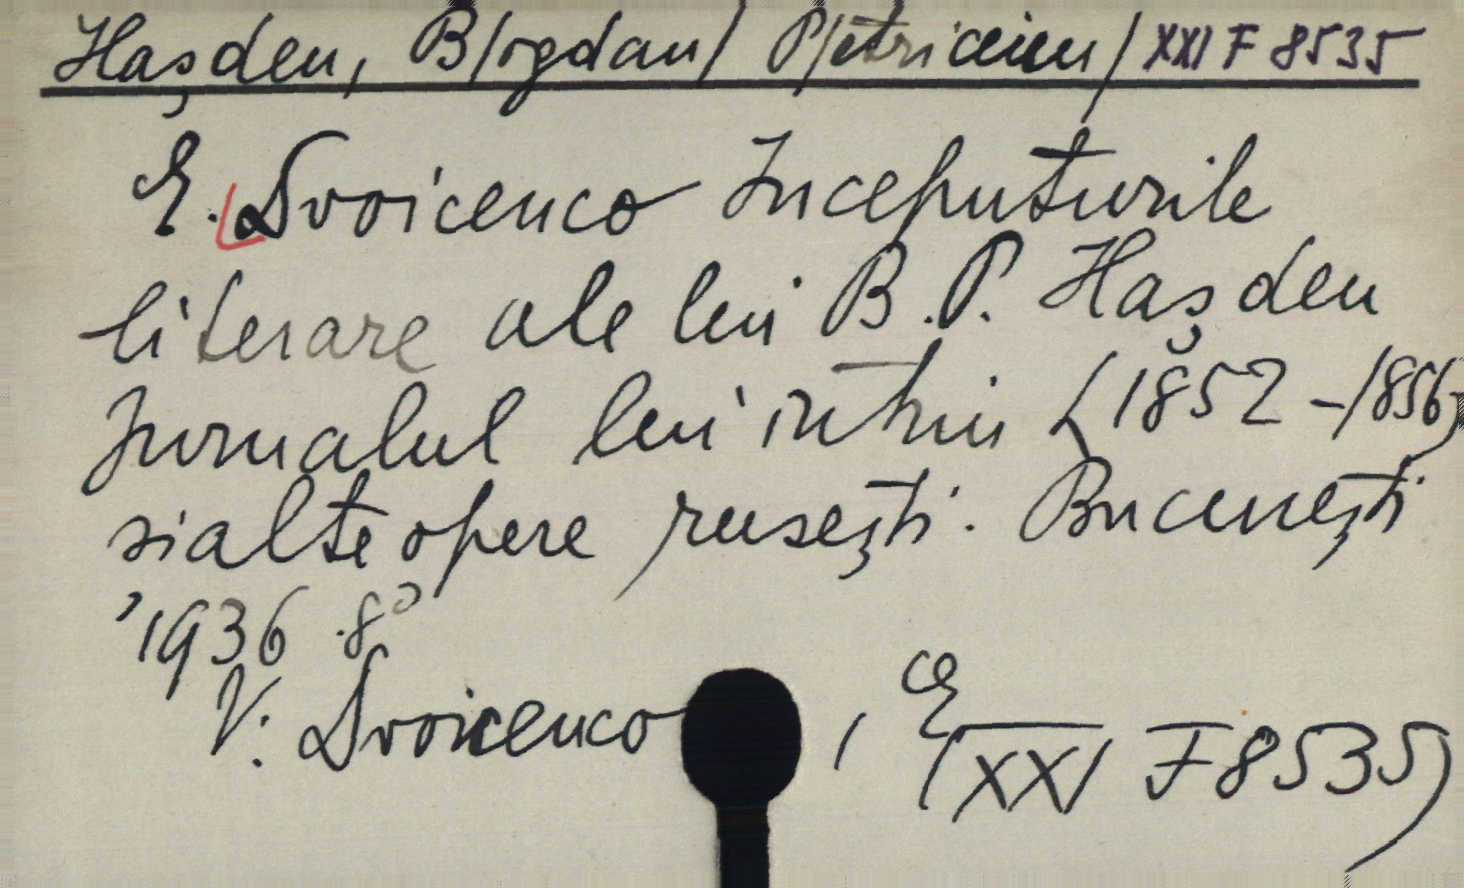 Hașdeu, B/ogdan/ P/etriceicu/ XXI F 8535
E. Dvoicenco Inceputurile
literare ale lui B.P. Hașdeu
Jurnalul lui intim (1852-1856)
si alte opere rusești. București
1936 8°
V. Dvoicenco, E
(XXI F 8535)